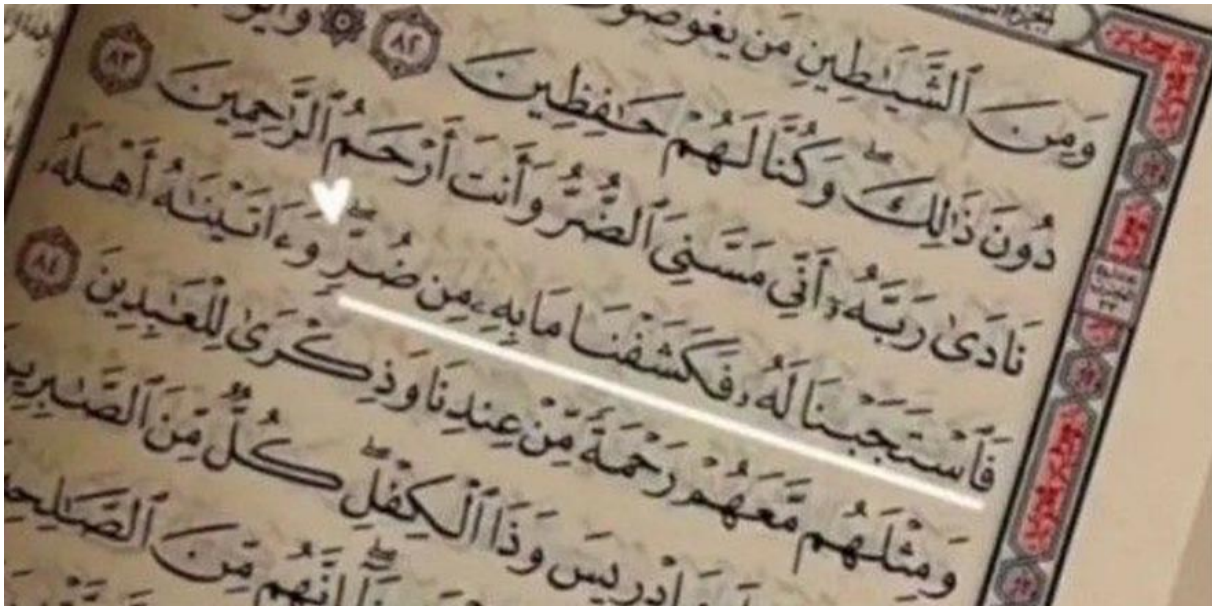 وَمِنَ ٱلشَّيَـٰطِينِ مَن يَغُوصُونَ
دُونَ ذَٰلِكَ ۖ وَكُنَّا لَهُمْ حَـٰفِظِينَ ٨٢ ۞ وَأَيُّوبَ
نَادَىٰ رَبَّهُۥٓ أَنِّى مَسَّنِىَ ٱلضُّرُّ وَأَنتَ أَرْحَمُ ٱلرَّٰحِمِينَ ٨٣
فَٱسْتَجَبْنَا لَهُۥ فَكَشَفْنَا مَا بِهِۦ مِن ضُرٍّ ۖ وَءَاتَيْنَـٰهُ أَهْلَهُۥ
وَمِثْلَهُم مَّعَهُمْ رَحْمَةً مِّنْ عِندِنَا وَذِكْرَىٰ لِلْعَـٰبِدِينَ ٨٤
إِدْرِيسَ وَذَا ٱلْكِفْلِ ۖ كُلٌّ مِّنَ ٱلصَّـٰبِرِينَ
إِنَّهُم مِّنَ ٱلصَّـٰلِحِينَ